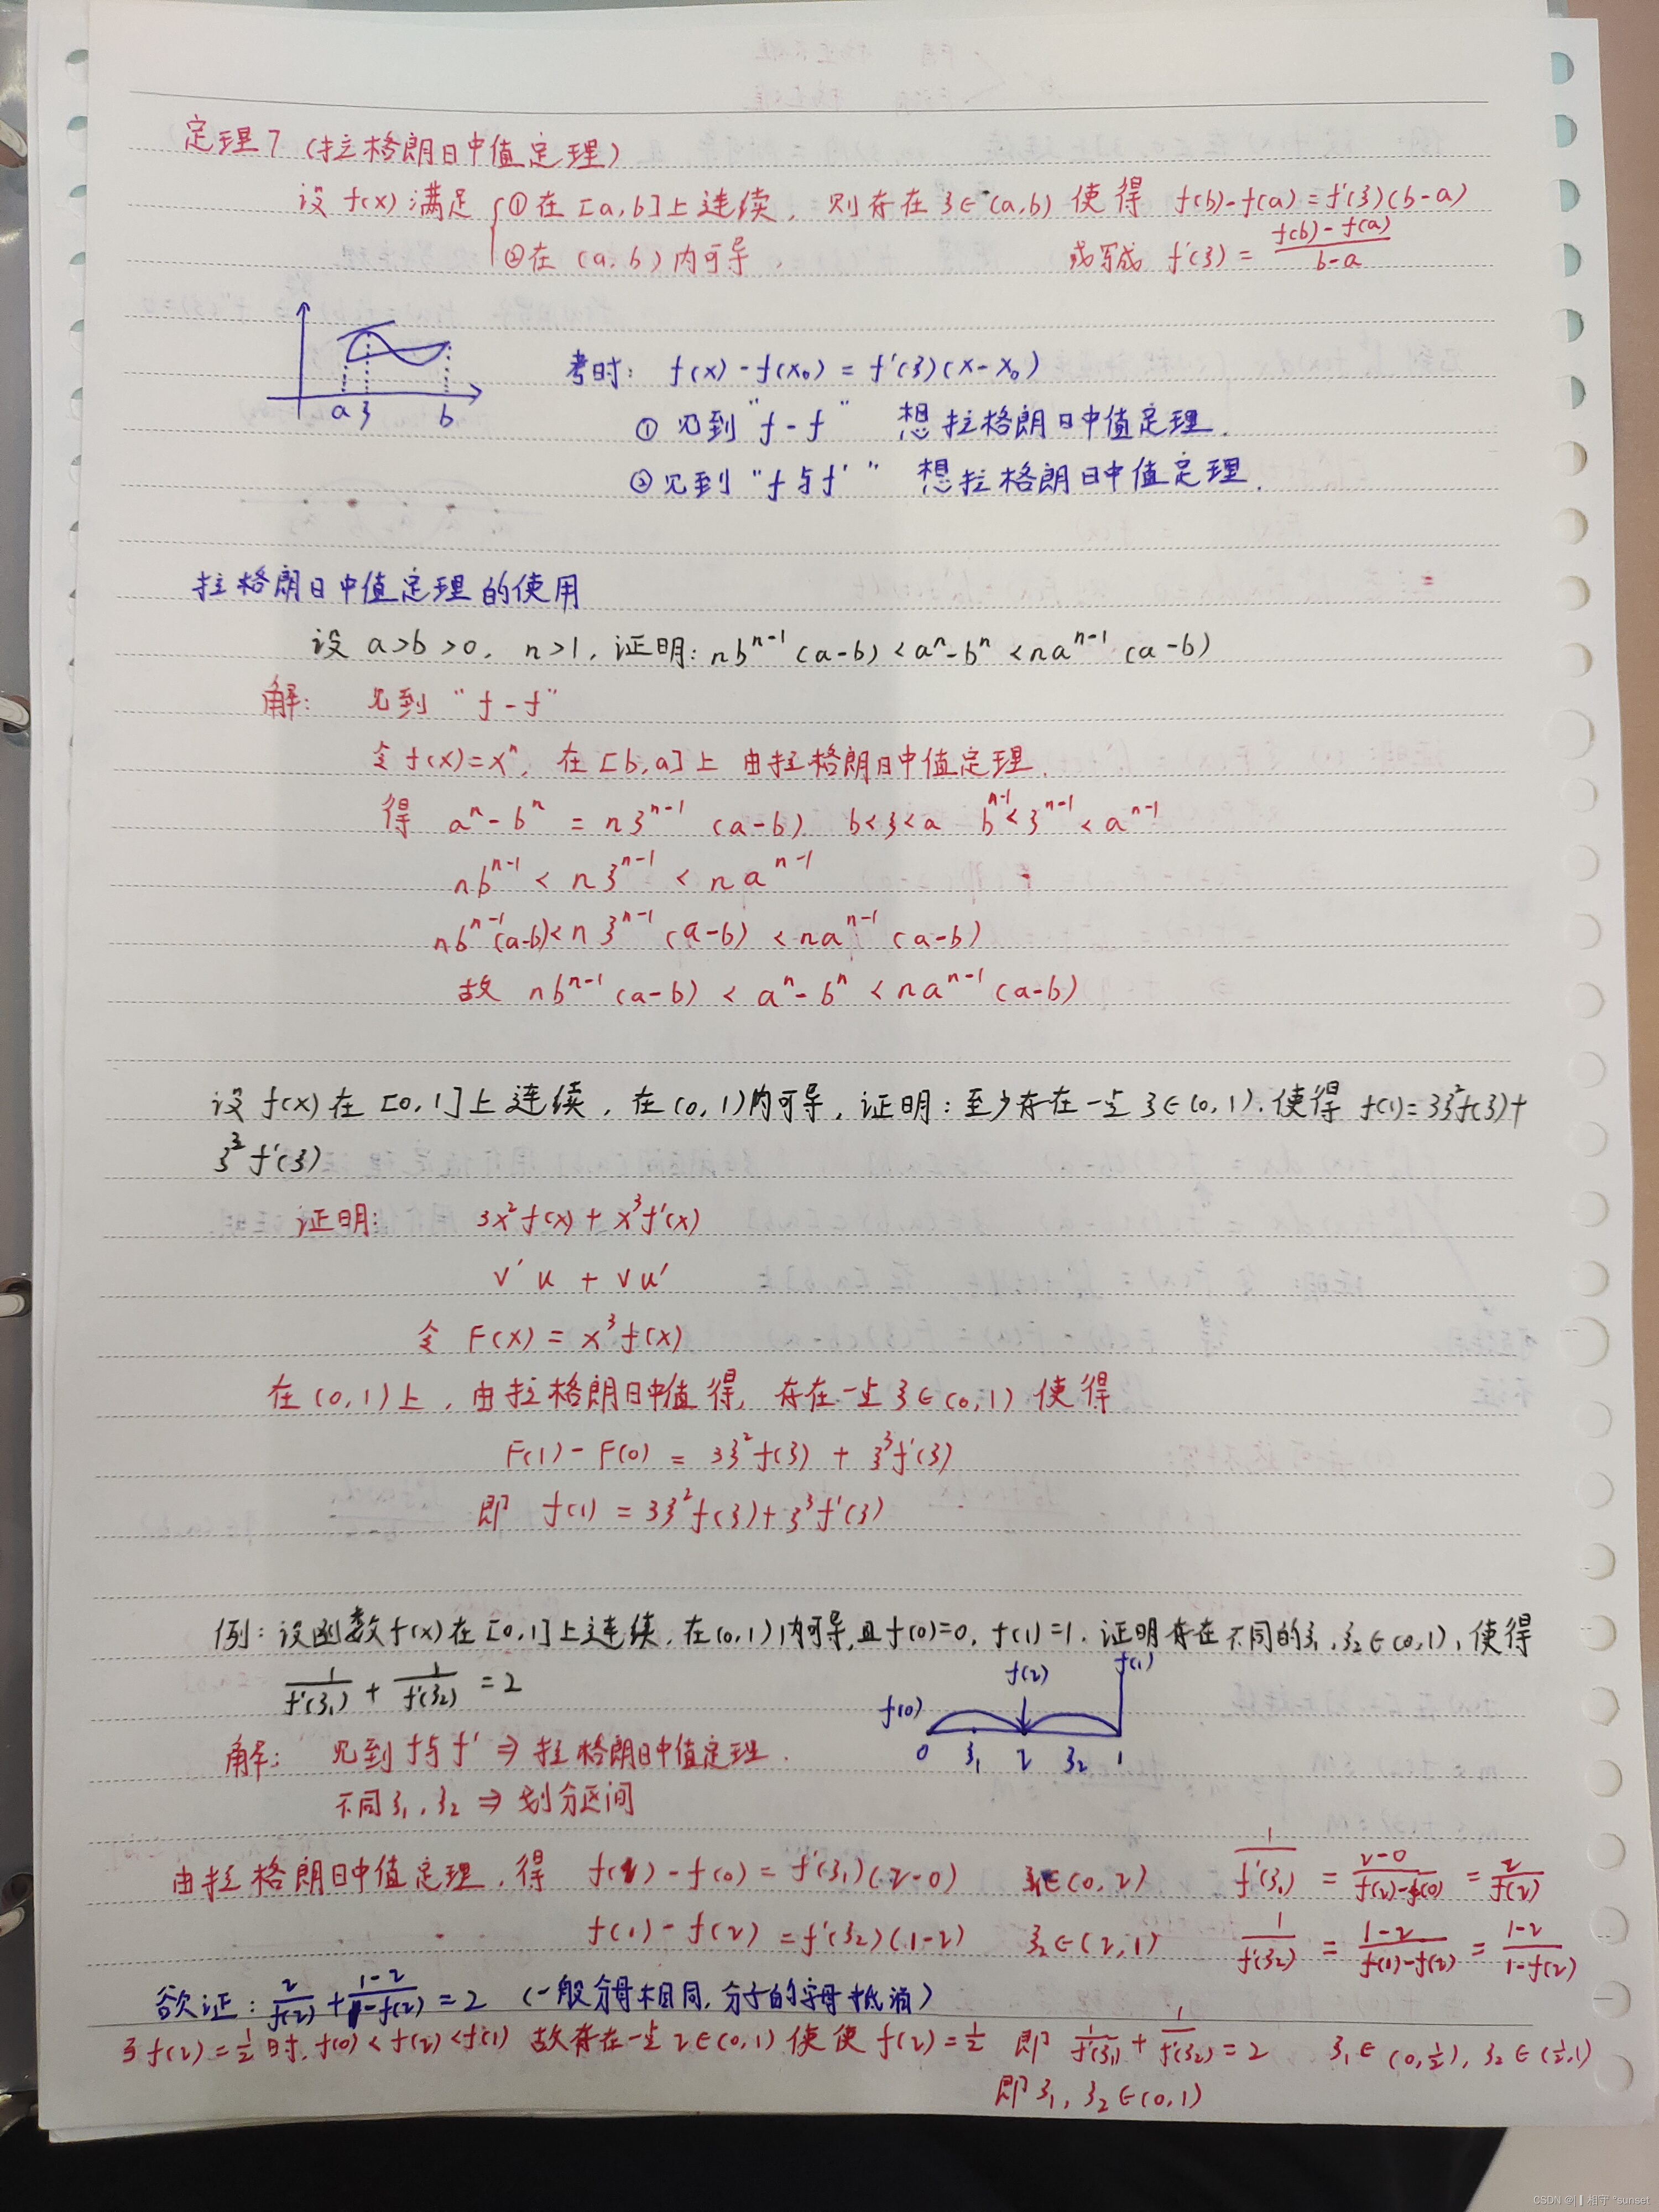 定理7 (拉格朗日中值定理)
设 f(x) 满足 ①在[a,b]上连续, 则存在 ξ∈(a,b) 使得 f(b)-f(a)=f'(ξ)(b-a)
②在(a,b)内可导. 或写成 f'(ξ) = \frac{f(b)-f(a)}{b-a}
a ξ b
考时: f(x)-f(x₀)=f'(ξ)(x-x₀)
① 见到"f-f" 想拉格朗日中值定理.
② 见到"f与f'" 想拉格朗日中值定理.
拉格朗日中值定理的使用
设 a>b>0, n>1, 证明: nb^{n-1}(a-b)<a^n-b^n<na^{n-1}(a-b)
解: 见到"f-f"
令f(x)=x^n, 在[b,a]上 由拉格朗日中值定理.
得 a^n-b^n = nξ^{n-1}(a-b) b<ξ<a b^{n-1}<ξ^{n-1}<a^{n-1}
nb^{n-1} < nξ^{n-1} < na^{n-1}
nb^{n-1}(a-b)<nξ^{n-1}(a-b) <na^{n-1}(a-b)
故 nb^{n-1}(a-b) < a^n-b^n < na^{n-1}(a-b)
设 f(x)在[0,1]上连续, 在(0,1)内可导, 证明: 至少存在一点 ξ∈(0,1), 使得 f(1)=3ξ²f(ξ)+
ξ³f'(ξ)
证明: 3x²f(x)+x³f'(x)
v'u + vu'
令 F(x)=x³f(x)
在(0,1)上, 由拉格朗日中值得, 存在一点 ξ∈(0,1) 使得
F(1)-F(0) = 3ξ²f(ξ) + ξ³f'(ξ)
即 f(1) = 3ξ²f(ξ)+ξ³f'(ξ)
例: 设函数f(x)在[0,1]上连续, 在(0,1)内可导, 且f(0)=0, f(1)=1. 证明存在不同的ξ₁,ξ₂∈(0,1), 使得
\frac{1}{f'(ξ₁)} + \frac{1}{f'(ξ₂)} = 2
f(0) f(τ) f(1)
0 ξ₁ τ ξ₂ 1
解: 见到f与f' ⇒ 拉格朗日中值定理.
不同ξ₁,ξ₂ ⇒ 划分区间
由拉格朗日中值定理, 得 f(τ)-f(0)=f'(ξ₁)(τ-0) ξ₁∈(0,τ) \frac{1}{f'(ξ₁)} = \frac{τ-0}{f(τ)-f(0)} = \frac{τ}{f(τ)}
f(1)-f(τ)=f'(ξ₂)(1-τ) ξ₂∈(τ,1) \frac{1}{f'(ξ₂)} = \frac{1-τ}{f(1)-f(τ)} = \frac{1-τ}{1-f(τ)}
欲证: \frac{τ}{f(τ)}+\frac{1-τ}{1-f(τ)}=2 (一般分母相同, 分子的字母抵消)
f(τ)=\frac{1}{2}时, f(0)<f(τ)<f(1) 故存在一点τ∈(0,1) 使使 f(τ)=\frac{1}{2} 即 \frac{1}{f'(ξ₁)}+\frac{1}{f'(ξ₂)}=2 ξ₁∈(0,\frac{1}{2}), ξ₂∈(\frac{1}{2},1)
即 ξ₁,ξ₂∈(0,1)